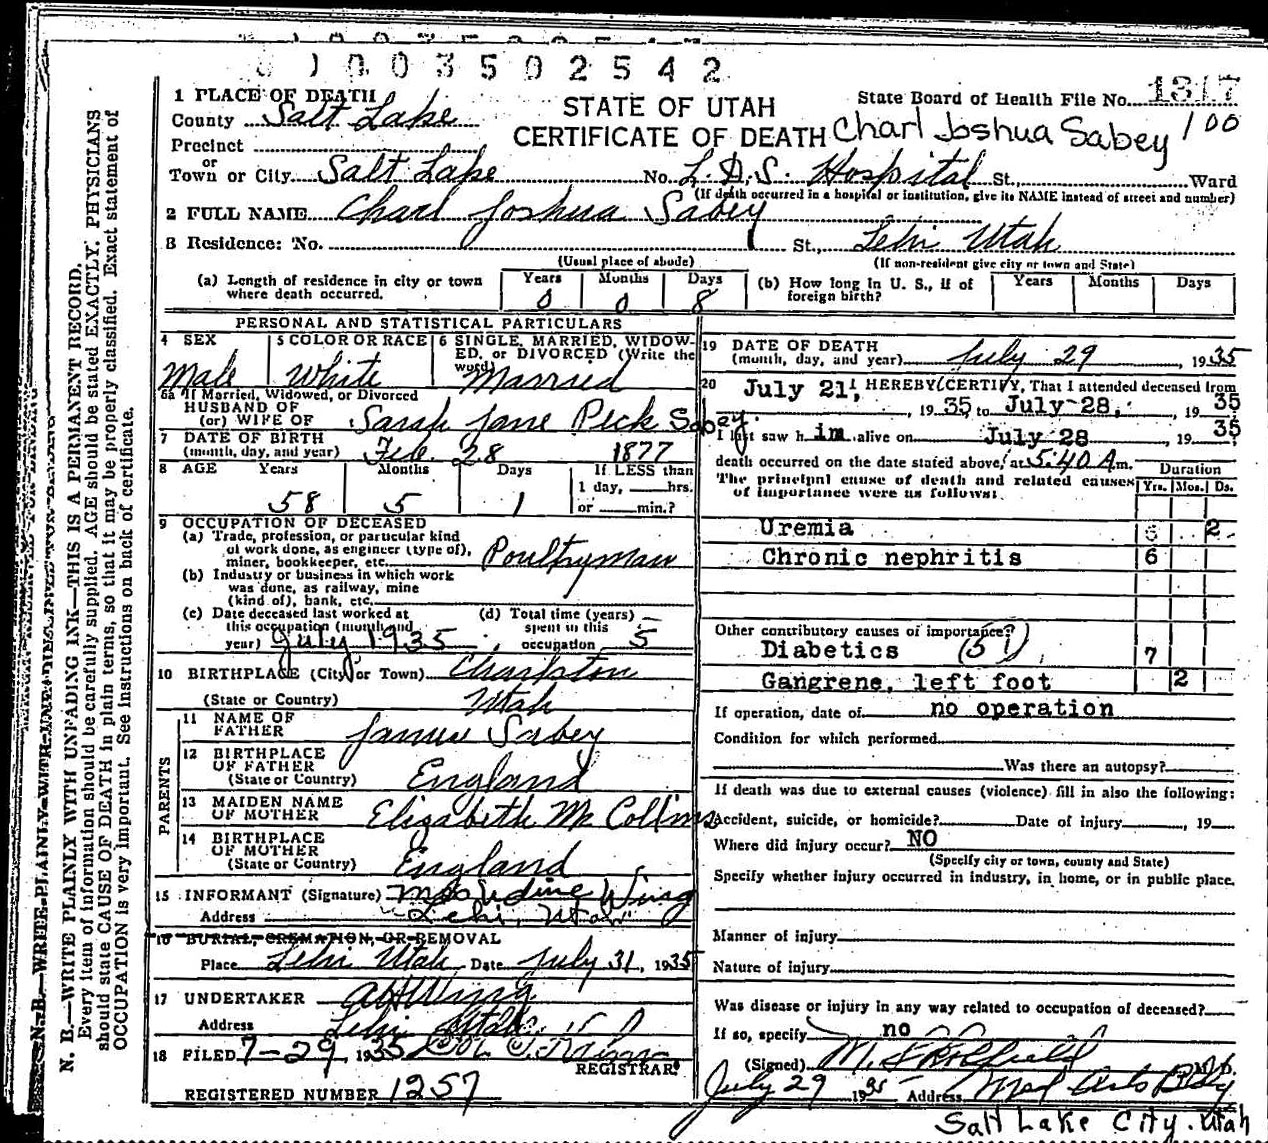 0 1 0 0 3 5 0 2 5 4 2
1 PLACE OF DEATH
County Salt Lake
STATE OF UTAH
CERTIFICATE OF DEATH
State Board of Health File No. 1317
Charl Joshua Sabey 100
Precinct
or
Town or City Salt Lake No. L.D.S. Hospital St., Ward
(If death occurred in a hospital or institution, give its NAME instead of street and number)
2 FULL NAME Charl Joshua Sabey
3 Residence: No. St., Lehi Utah
(Usual place of abode) (If non-resident give city or town and State)
(a) Length of residence in city or town where death occurred. Years 0 Months 0 Days 8
(b) How long in U. S., if of foreign birth? Years Months Days
PERSONAL AND STATISTICAL PARTICULARS
4 SEX Male
5 COLOR OR RACE White
6 SINGLE, MARRIED, WIDOWED, or DIVORCED (Write the word) Married
6a If Married, Widowed, or Divorced
HUSBAND OF
(or) WIFE OF Sarah Jane Peck Sabey
7 DATE OF BIRTH
(month, day, and year) Feb. 28 1877
8 AGE Years 58 Months 5 Days 1 If LESS than
1 day, hrs.
or min.?
9 OCCUPATION OF DECEASED
(a) Trade, profession, or particular kind
of work done, as engineer (type of),
miner, bookkeeper, etc. Poultryman
(b) Industry or business in which work
was done, as railway, mine
(kind of), bank, etc.
(c) Date deceased last worked at
this occupation (month and
year) July 1935
(d) Total time (years)
spent in this
occupation 5
10 BIRTHPLACE (City or Town) Charleston
(State or Country) Utah
PARENTS
11 NAME OF
FATHER James Sabey
12 BIRTHPLACE
OF FATHER
(State or Country) England
13 MAIDEN NAME
OF MOTHER Elizabeth Mc Collins
14 BIRTHPLACE
OF MOTHER
(State or Country) England
15 INFORMANT (Signature) Mrs Wing
Address Lehi, Utah
16 BURIAL, CREMATION, OR REMOVAL
Place Lehi Utah Date July 31, 1935
17 UNDERTAKER Wing
Address Lehi Utah
18 FILED 7-29, 1935
REGISTRAR
REGISTERED NUMBER 1257
19 DATE OF DEATH
(month, day, and year) July 29, 1935
20 July 21, I HEREBY CERTIFY, That I attended deceased from
, 19 35 to July 28, , 19 35
I last saw h im alive on July 28, 19 35
death occurred on the date stated above, at 5:40 A m.
The principal cause of death and related causes
of importance were as follows:
Duration
Yrs. Mos. Ds.
Uremia 2
Chronic nephritis 6
Other contributory causes of importance?
Diabetics (59) 7
Gangrene, left foot 2
If operation, date of no operation
Condition for which performed
Was there an autopsy?
If death was due to external causes (violence) fill in also the following:
Accident, suicide, or homicide? Date of injury , 19
Where did injury occur? NO
(Specify city or town, county and State)
Specify whether injury occurred in industry, in home, or in public place.
Manner of injury
Nature of injury
Was disease or injury in any way related to occupation of deceased?
If so, specify no
(Signed) M. M.D.
July 29 1935 Address Med Arts Bldg
Salt Lake City. Utah
N. B.—WRITE PLAINLY WITH UNFADING INK—THIS IS A PERMANENT RECORD.
Every item of information should be carefully supplied. AGE should be stated EXACTLY. PHYSICIANS
should state CAUSE OF DEATH in plain terms, so that it may be properly classified. Exact statement of
OCCUPATION is very important. See instructions on back of certificate.